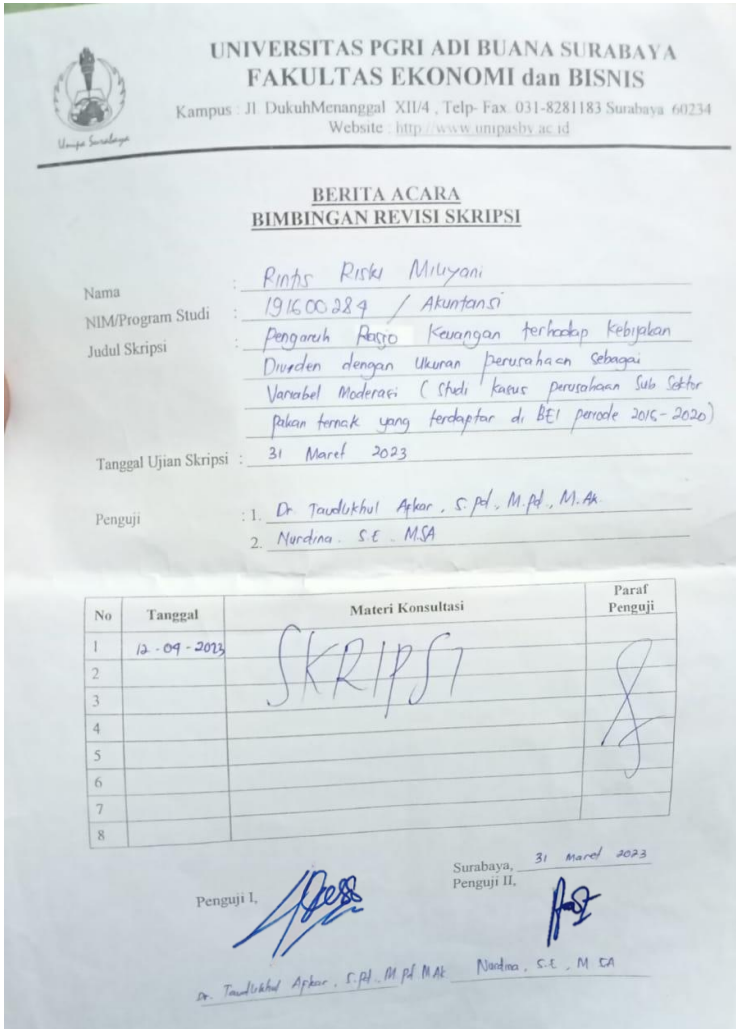 UNIVERSITAS PGRI ADI BUANA SURABAYA
FAKULTAS EKONOMI dan BISNIS
Kampus : Jl. DukuhMenanggal XII/4 , Telp- Fax. 031-8281183 Surabaya 60234
Website : http://www.unipasby.ac.id
Unipa Surabaya
BERITA ACARA
BIMBINGAN REVISI SKRIPSI
Nama : Rintis Riski Miliyani
NIM/Program Studi : 191600284 / Akuntansi
Judul Skripsi : Pengaruh Rasio Keuangan terhadap Kebijakan
Dividen dengan Ukuran perusahaan sebagai
Variabel Moderasi ( Studi kasus perusahaan Sub Sektor
pakan ternak yang terdaptar di BEI periode 2016-2020)
Tanggal Ujian Skripsi : 31 Maret 2023
Penguji : 1. Dr. Taudlikhul Afkar, S.Pd., M.Pd., M.Ak
2. Nurdina. S.E., M.SA
No Tanggal Materi Konsultasi Paraf Penguji
1 12-04-2023 SKRIPSI
2
3
4
5
6
7
8
Surabaya, 31 Maret 2023
Penguji I, Penguji II,
Dr. Taudlikhul Afkar, S.Pd., M.Pd M.Ak Nurdina, S.E., M SA